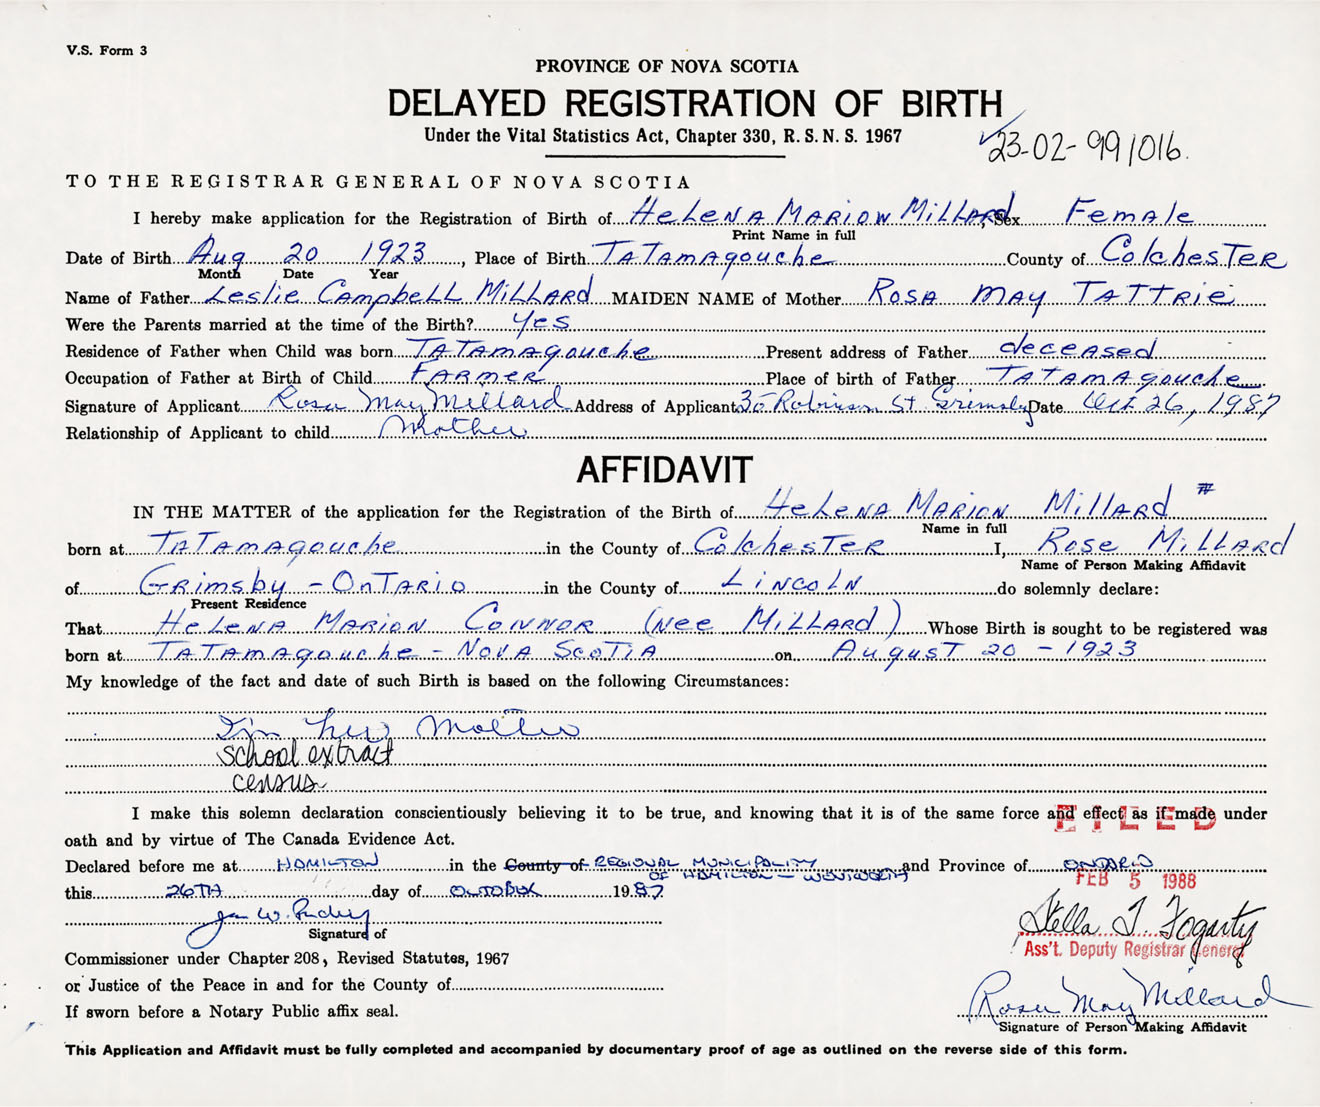 V.S. Form 3
PROVINCE OF NOVA SCOTIA
DELAYED REGISTRATION OF BIRTH
Under the Vital Statistics Act, Chapter 330, R. S. N. S. 1967
23-02-991016.
TO THE REGISTRAR GENERAL OF NOVA SCOTIA
I hereby make application for the Registration of Birth of Helena Marion Millard, Sex Female
Print Name in full
Date of Birth Aug 20 1923, Place of Birth Tatamagouche County of Colchester
Month Date Year
Name of Father Leslie Campbell Millard MAIDEN NAME of Mother Rosa May Tattrie
Were the Parents married at the time of the Birth? Yes
Residence of Father when Child was born Tatamagouche Present address of Father deceased
Occupation of Father at Birth of Child Farmer Place of birth of Father Tatamagouche
Signature of Applicant Rosa May Millard Address of Applicant 35 Robinson St Grimsby Date Oct 26, 1987
Relationship of Applicant to child Mother
AFFIDAVIT
IN THE MATTER of the application for the Registration of the Birth of Helena Marion Millard #
Name in full
born at Tatamagouche in the County of Colchester I, Rose Millard
Name of Person Making Affidavit
of Grimsby - Ontario in the County of Lincoln do solemnly declare:
Present Residence
That Helena Marion Connor (nee Millard) Whose Birth is sought to be registered was
born at Tatamagouche - Nova Scotia on August 20 - 1923
My knowledge of the fact and date of such Birth is based on the following Circumstances:
I'm her Mother
school extract
census
I make this solemn declaration conscientiously believing it to be true, and knowing that it is of the same force and effect as if made under
FILED
oath and by virtue of The Canada Evidence Act.
Declared before me at HAMILTON in the County of REGIONAL MUNICIPALITY OF HAMILTON - WENTWORTH and Province of ONTARIO
this 26TH day of OCTOBER 1987
FEB 5 1988
Signature of
Stella T. Fogarty
Ass't. Deputy Registrar General
Commissioner under Chapter 208, Revised Statutes, 1967
or Justice of the Peace in and for the County of
Rosa May Millard
If sworn before a Notary Public affix seal.
Signature of Person Making Affidavit
This Application and Affidavit must be fully completed and accompanied by documentary proof of age as outlined on the reverse side of this form.